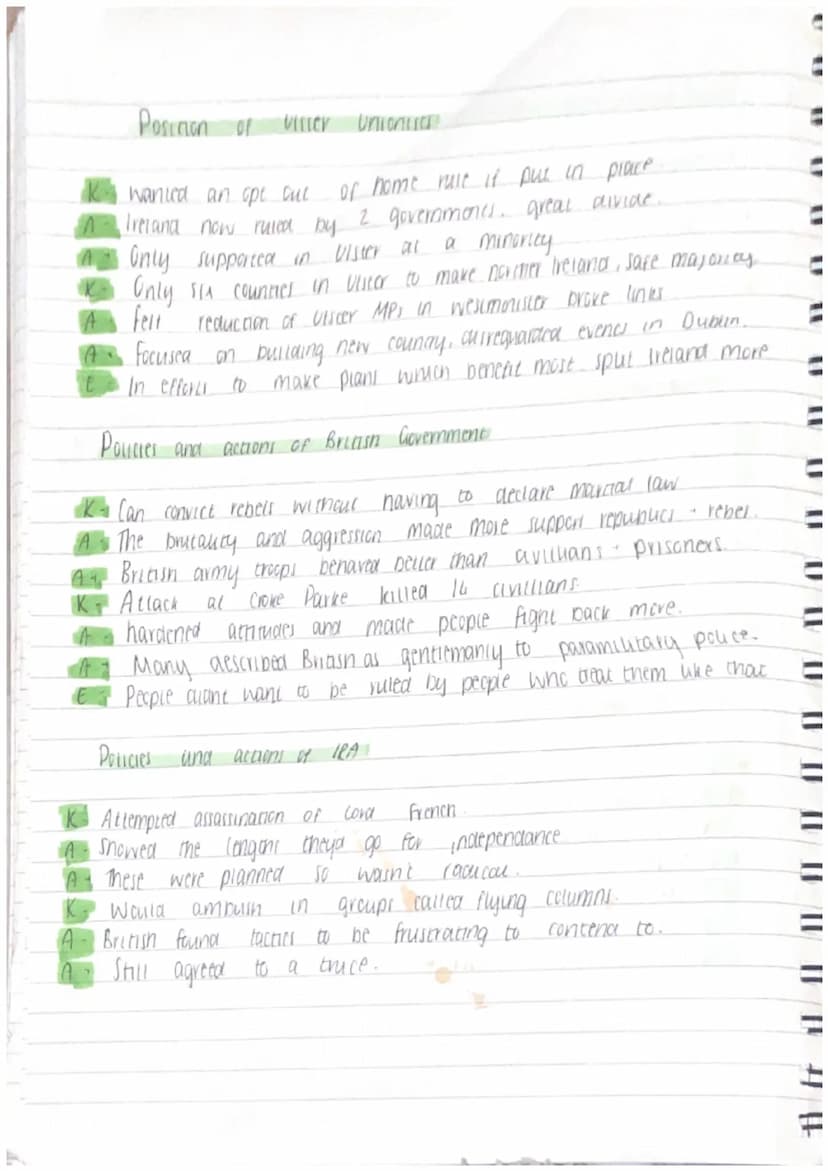 Position of Ulster Unionists
K- wanted an opt out of home rule if put in place
A- Ireland now ruled by 2 governments. great divide.
A- Only supported in Ulster as a minority
K- Only six counties in Ulster to make norther Ireland, safe majority
A- felt reduction of Ulster MPs in westmonister broke links
A- Focused on building new country, disreguarded events in Dublin.
E- In efforts to make plans which benefit most split Ireland more
Policies and actions of British Government
K- Can convict rebels without having to declare martial law
A- The brutality and aggression made more support republics + rebel.
A- British army troops behaved better than civilians + prisoners.
K- Attack at Croke Parke killed 14 civillians
A- hardened attitudes and made people fight back more.
A- Many described British as gentlemanly to paramilitary police.
E- People didnt want to be ruled by people who treat them like that
Policies and actions of IRA
K- Attempted assassination of Lord French.
A- Showed the lengths theyd go for independance
A- These were planned so wasnt radical.
K- Would ambush in groups called flying columns.
A- British found tactics to be frustrating to contend to.
A- Still agreed to a truce.